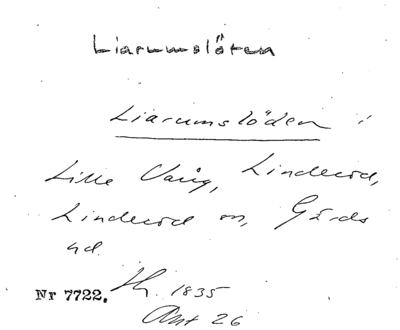 Liarumslöten
Liarumslöden i
Lille Vang, Linderöd,
Linderöd sn, Gärds
hd.
Nr 7722. Sk. 1835
Akt 26